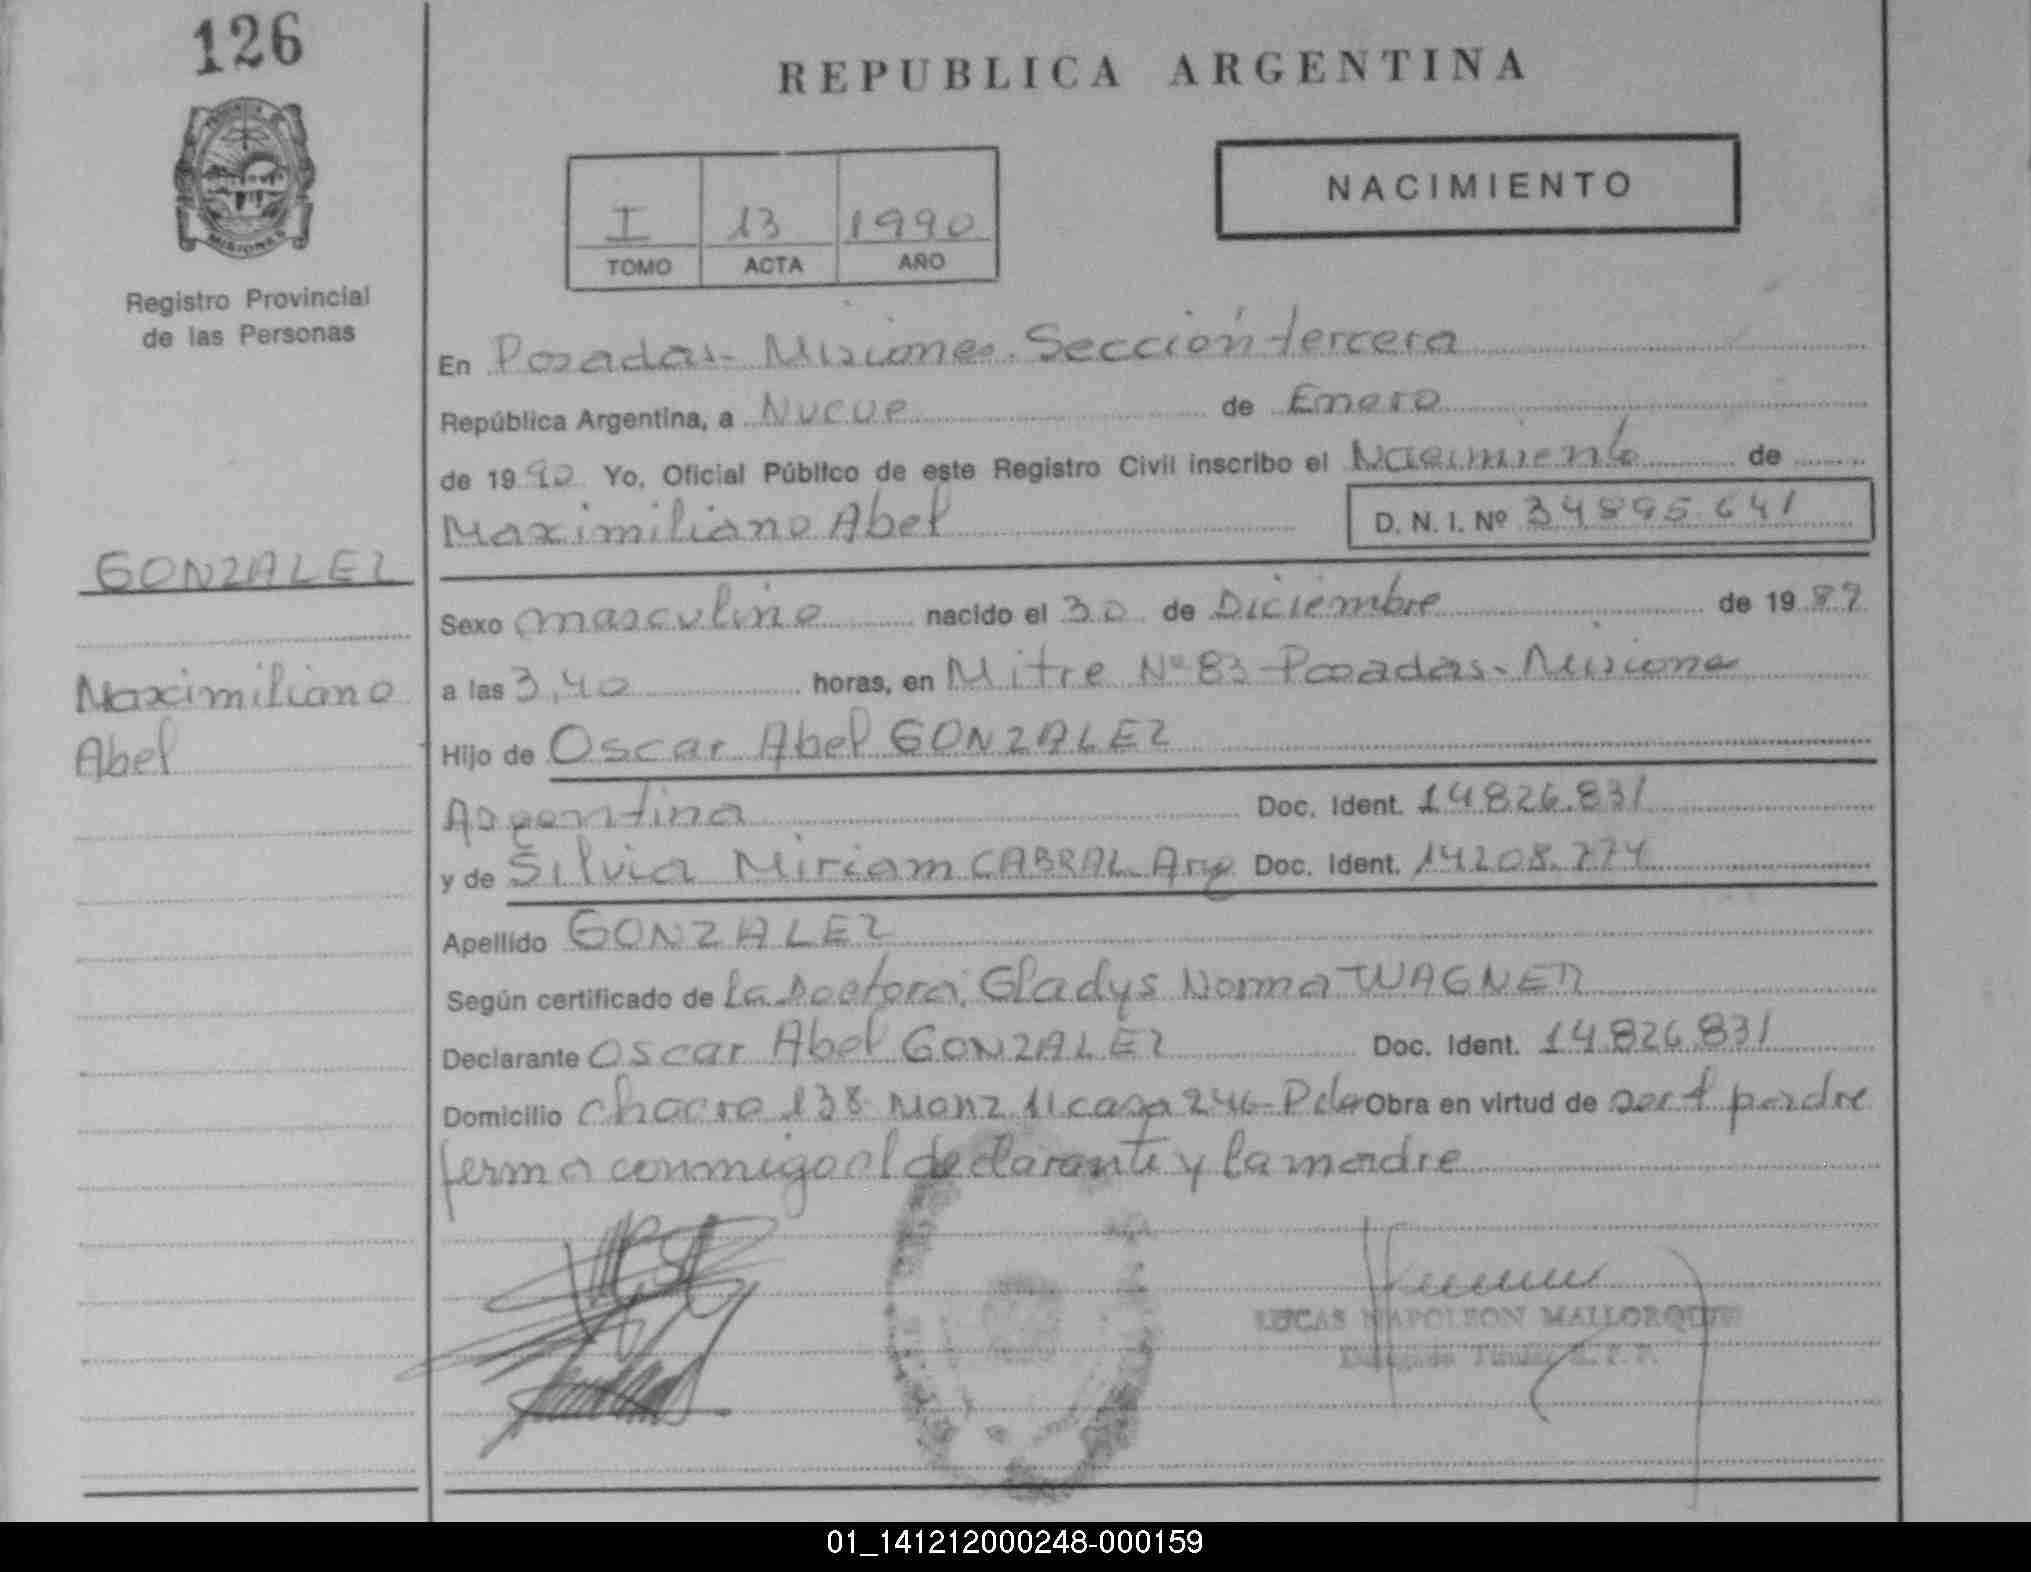 126
REPUBLICA ARGENTINA
NACIMIENTO
I 13 1990
TOMO ACTA AÑO
MISIONES
Registro Provincial
de las Personas
En Posadas - Misiones. Sección tercera
República Argentina, a Nueve de Enero
de 1990 Yo, Oficial Público de este Registro Civil inscribo el Nacimiento de
Maximiliano Abel D. N. I. Nº 34895.641
GONZALEZ
Sexo masculino nacido el 30 de Diciembre de 1989
Maximiliano
Abel
a las 3,40 horas, en Mitre Nº 83 - Posadas - Misiones
Hijo de Oscar Abel GONZALEZ
Argentina Doc. Ident. 14.826.831
y de Silvia Miriam CABRAL Arg Doc. Ident. 14.208.774
Apellido GONZALEZ
Según certificado de la Doctora: Gladys Norma WAGNER
Declarante Oscar Abel GONZALEZ Doc. Ident. 14.826.831
Domicilio chacra 138 Manz 11 casa 246 - Pdas Obra en virtud de ser el padre
ferma conmigo el declarante y la madre
LUCAS NAPOLEON MALLORQUIN
Delegado Titular R. P. P.
01_141212000248-000159